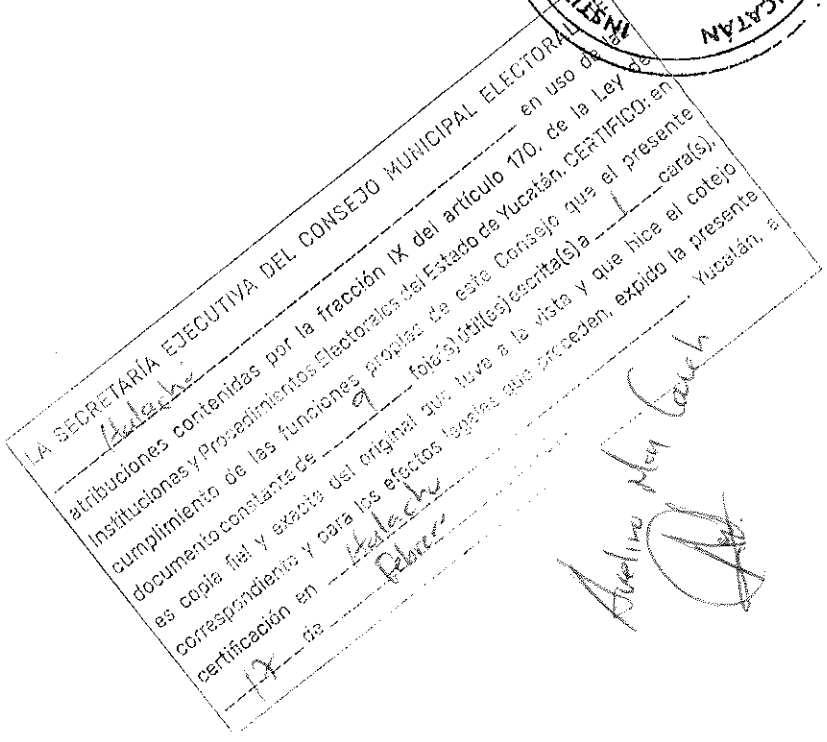 INSTITU
YUCATÁN
LA SECRETARÍA EJECUTIVA DEL CONSEJO MUNICIPAL ELECTORAL
Halachó en uso de
atribuciones contenidas por la fracción IX del artículo 170, de la Ley de
Instituciones y Procedimientos Electorales del Estado de Yucatán, CERTIFICO: en
cumplimiento de las funciones propias de este Consejo que el presente
documento constante de 9 foja(s) útil(es) escrita(s) a 1 cara(s),
es copia fiel y exacta del original que tuve a la vista y que hice el cotejo
correspondiente y para los efectos legales que proceden, expido la presente
certificación en Halachó Yucatán, a
17 de Febrero
Avelino May Cauch